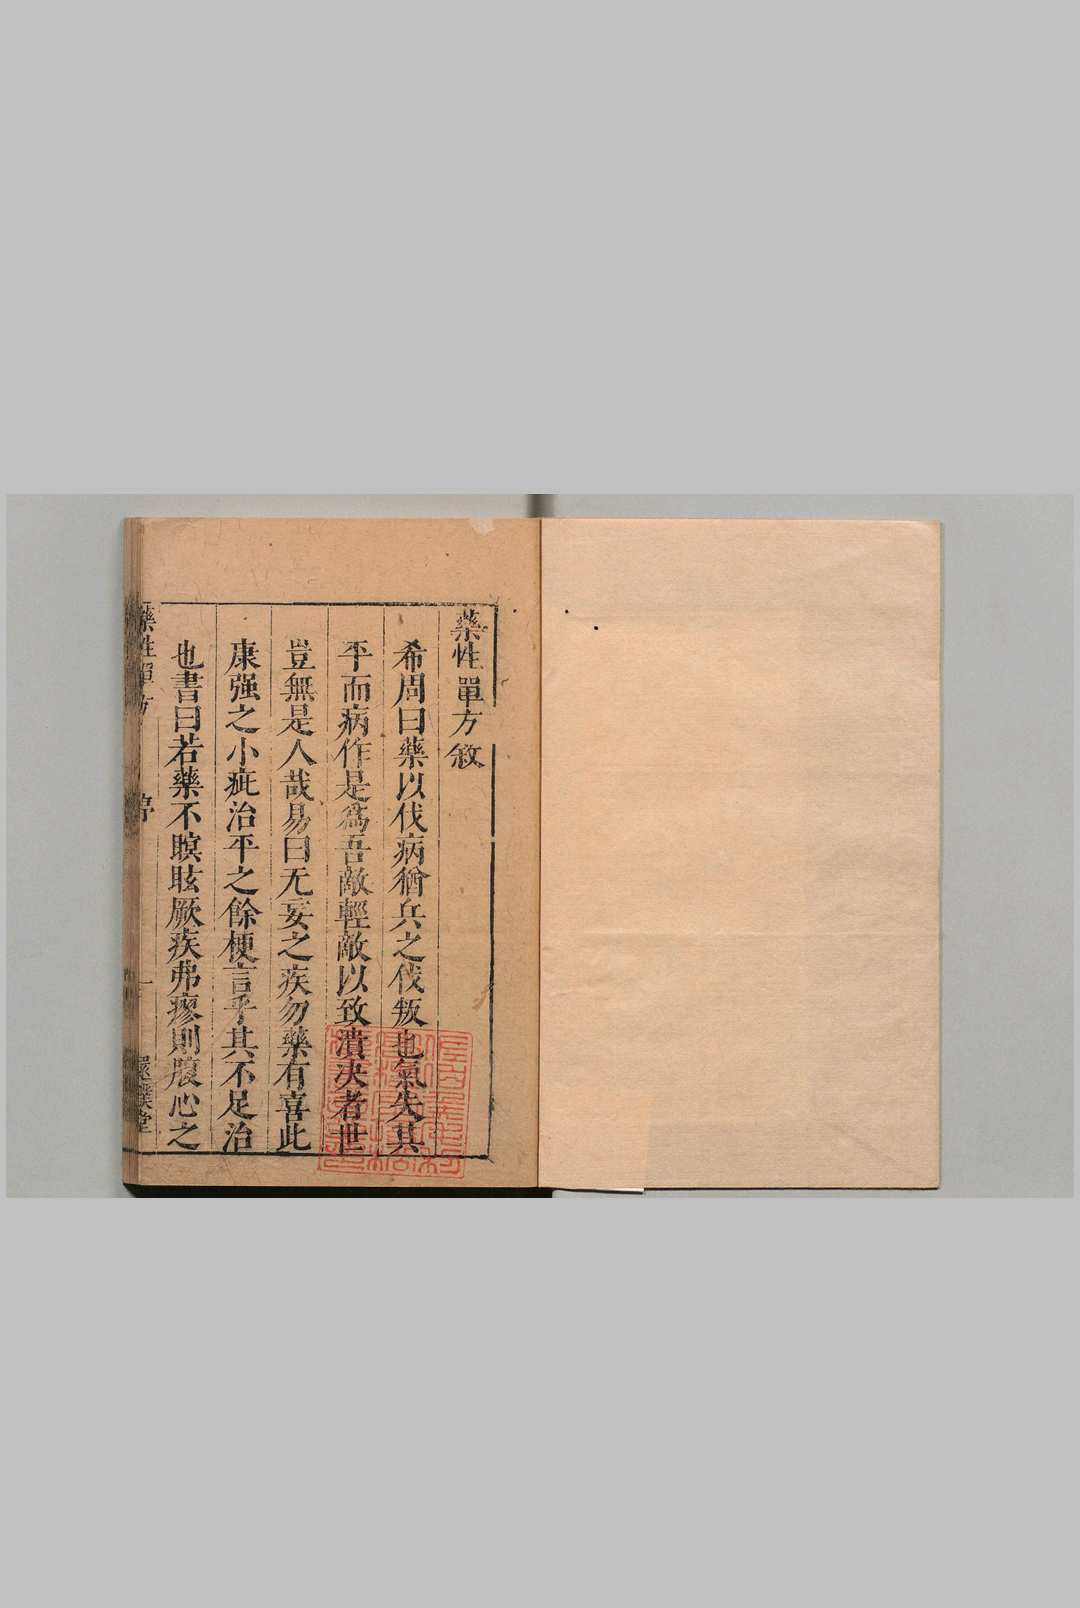 藥性單方敘
希周曰藥以伐病猶兵之伐叛也氣失其
平而病作是爲吾敵輕敵以致潰決者世
豈無是人哉易曰无妄之疾勿藥有喜此
康强之小疵治平之餘梗言乎其不足治
也書曰若藥不瞑眩厥疾弗瘳則腹心之
藥性單方
序
一
還樸堂